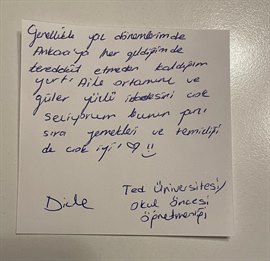 Genellikle yaz dönemlerimde
Ankaraya her geldiğimde
tereddüt etmeden kaldığım
yurt! Aile ortamını ve
güler yüzlü idaresini çok
seviyorum bunun yanı
sıra yemekleri ve temizliği
de çok iyi! ♡ :)
Dicle
Ted Üniversitesi/
Okul Öncesi
Öğretmenliği